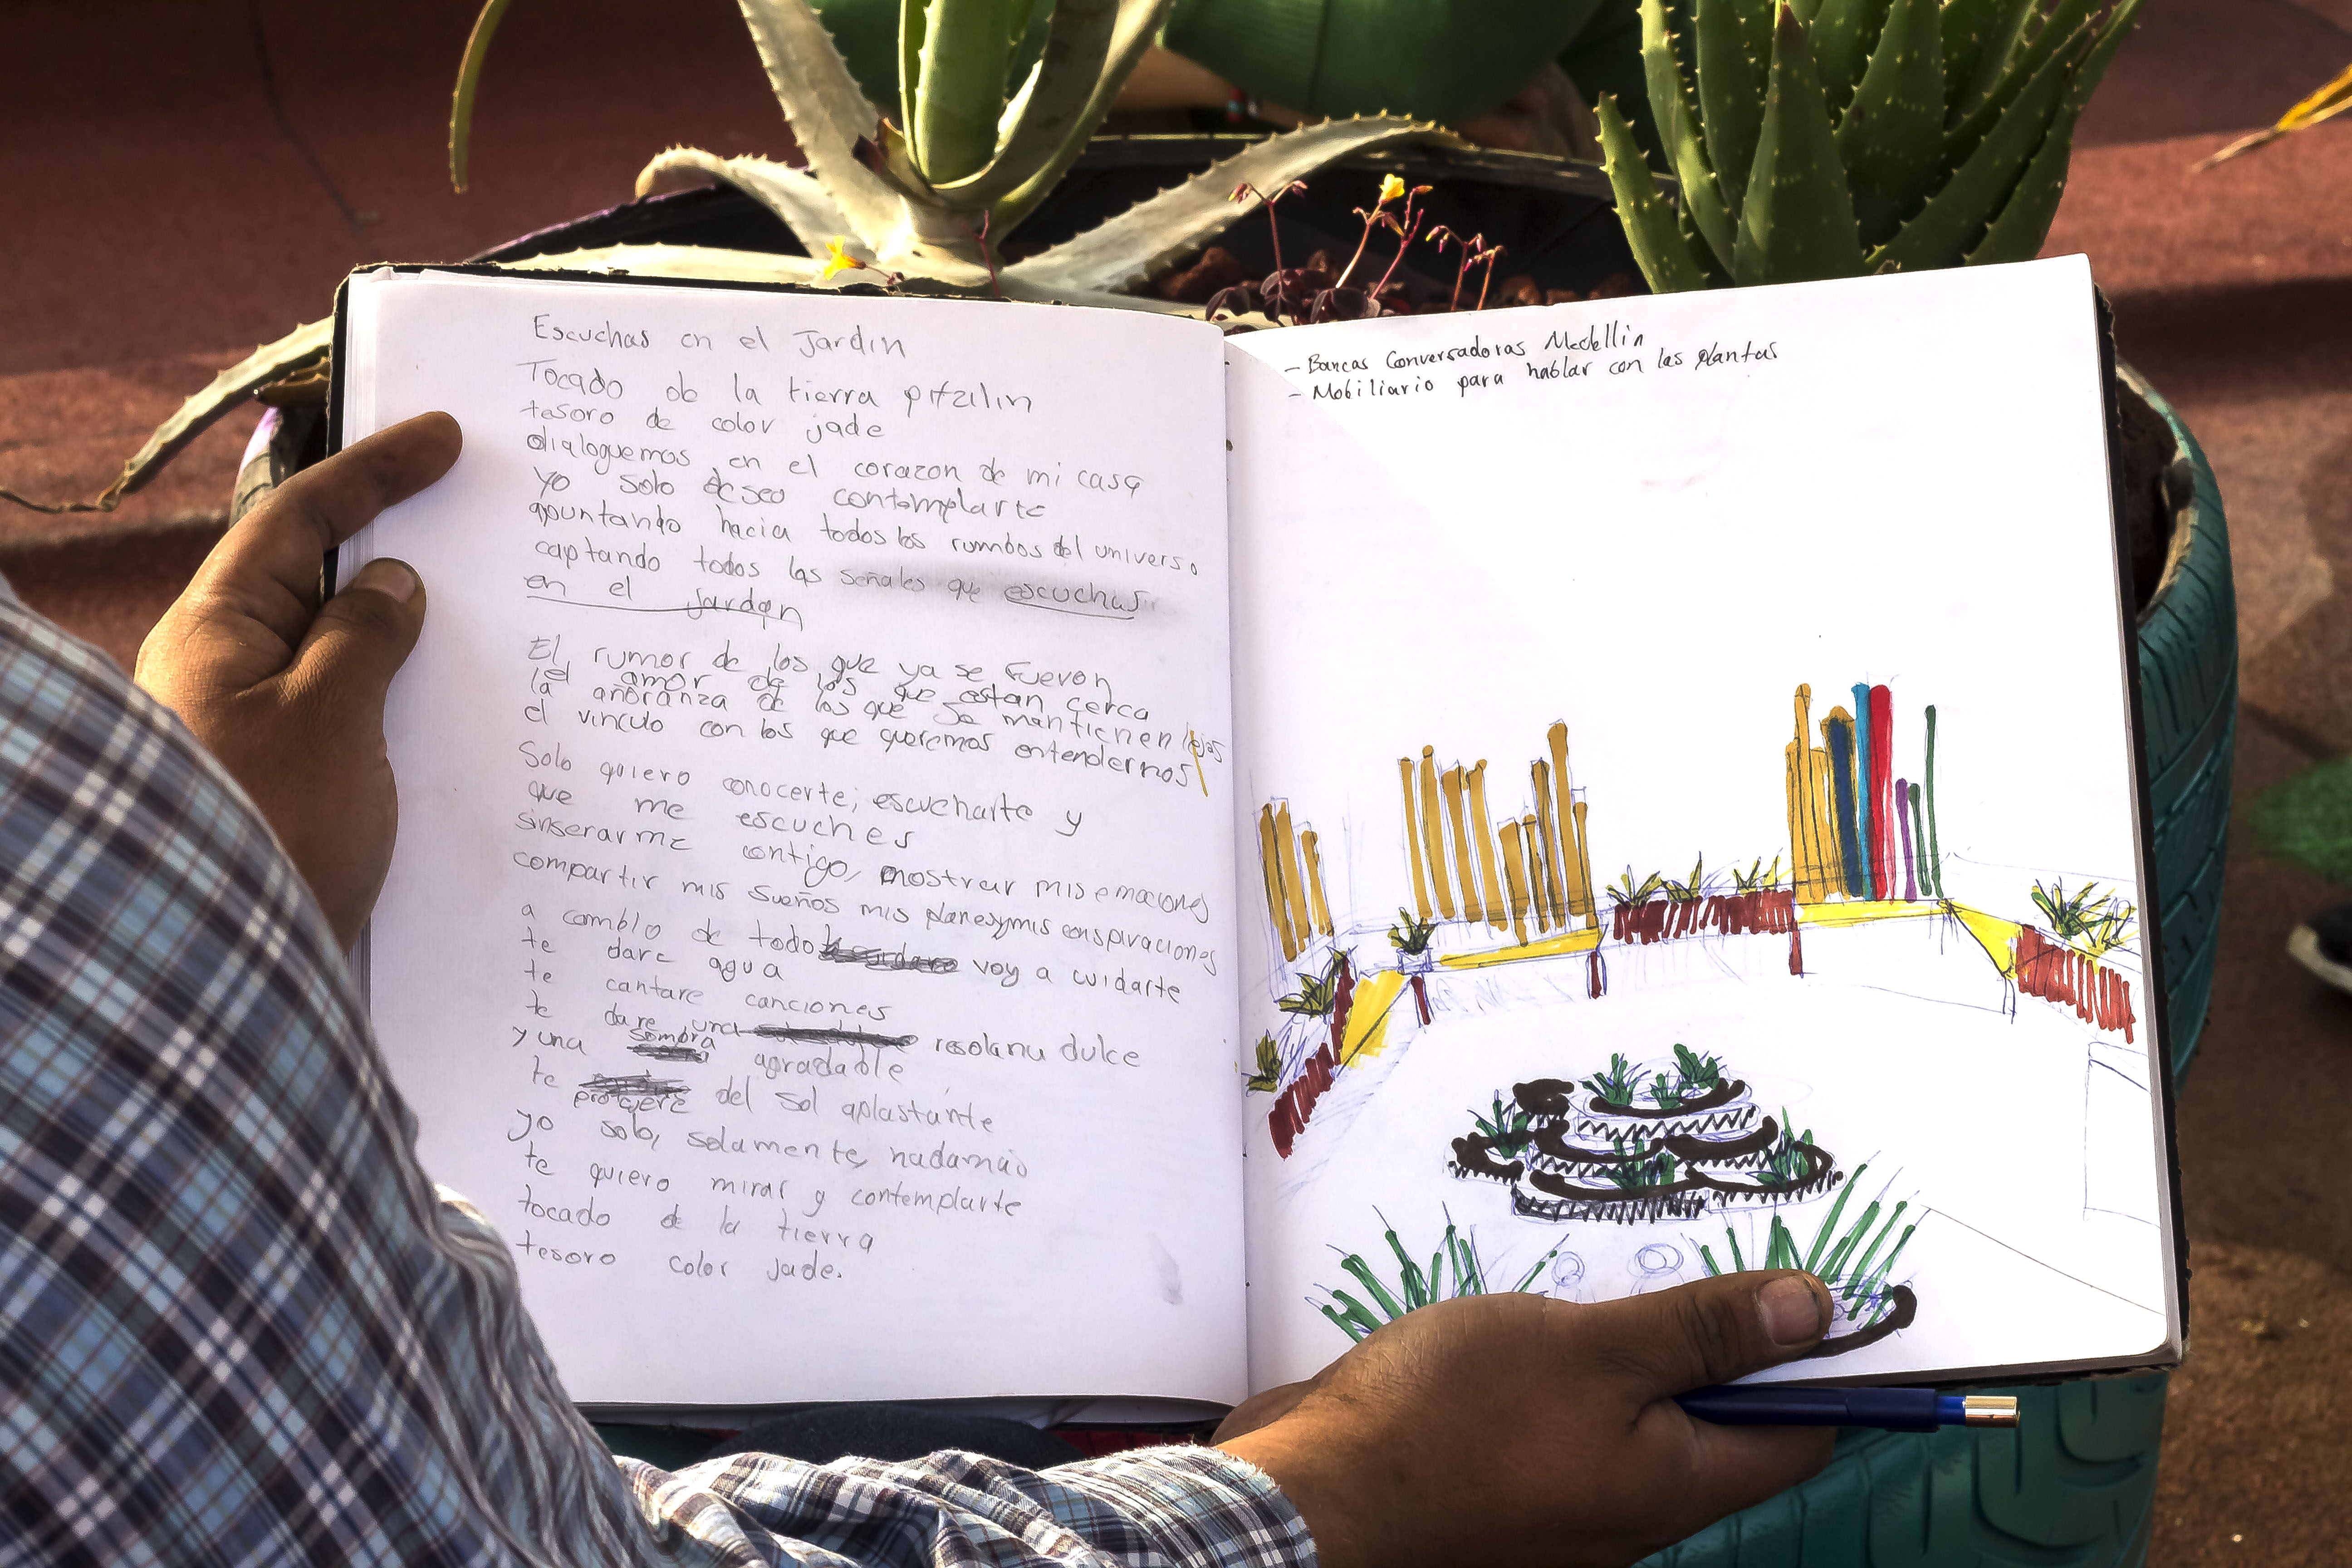 Escuchas en el Jardin
Tocado de la tierra pitzilin
tesoro de color jade
dialoguemos en el corazon de mi casa
yo solo deseo contemplarte
apuntando hacia todos los rumbos del universo
captando todos las señales que escuchas
en el jardin
El rumor de los que ya se fueron
el amor de los que estan cerca
la añoranza de los que se mantienen lejos
el vinculo con los que queremos entendernos
Solo quiero conocerte, escucharte y
que me escuches
sinserarme contigo, mostrar mis emociones
compartir mis sueños mis planes y mis conspiraciones
a cambio de todo voy a cuidarte
te dare agua
te cantare canciones
te dare una resolana dulce
y una sombra agradable
te protegere del sol aplastante
yo solo, solamente, nadamas
te quiero mirar y contemplarte
tocado de la tierra
tesoro color jade.
- Bancas Conversadoras Medellin
- Mobiliario para hablar con las plantas